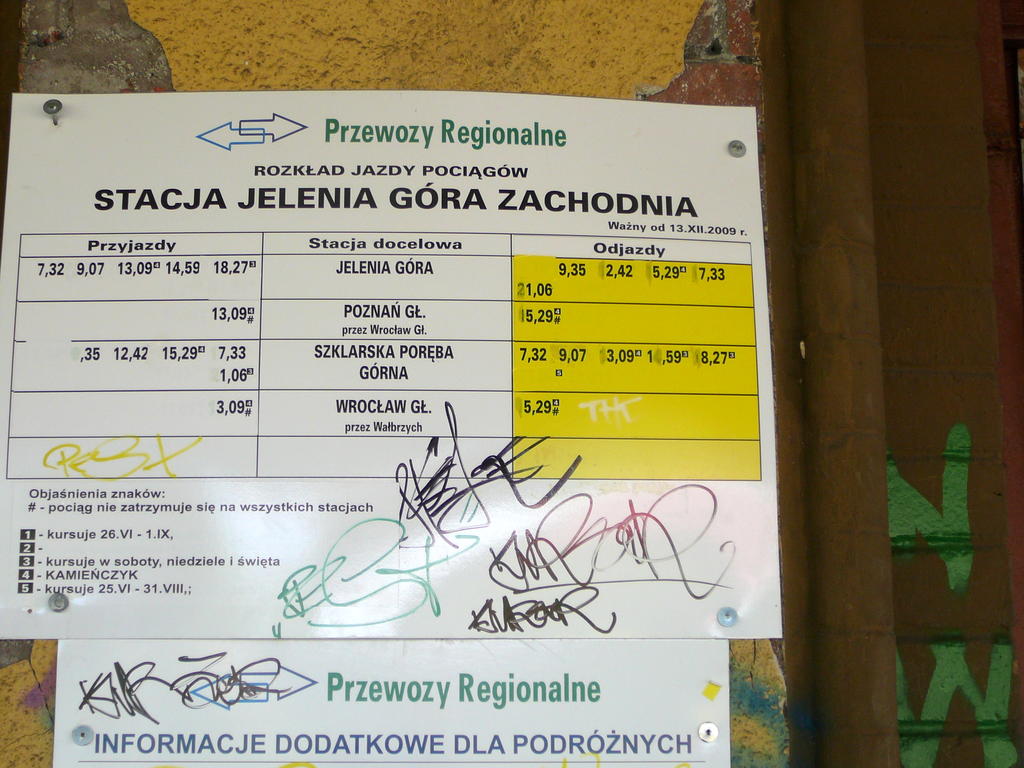 Przewozy Regionalne
ROZKŁAD JAZDY POCIĄGÓW
STACJA JELENIA GÓRA ZACHODNIA
Ważny od 13.XII.2009 r.
Przyjazdy Stacja docelowa Odjazdy
7,32 9,07 13,09 4 14,59 18,27 3 JELENIA GÓRA 9,35 2,42 5,29 4 7,33
21,06
13,09 4 # POZNAŃ GŁ. 5,29 4 #
przez Wrocław Gł.
,35 12,42 15,29 4 7,33 SZKLARSKA PORĘBA 7,32 9,07 3,09 4 1 ,59 3 8,27 3
1,06 3 GÓRNA 5
3,09 4 # WROCŁAW GŁ. 5,29 4 # THT
przez Wałbrzych
Objaśnienia znaków:
# - pociąg nie zatrzymuje się na wszystkich stacjach
1 - kursuje 26.VI - 1.IX,
2 -
3 - kursuje w soboty, niedziele i święta
4 - KAMIEŃCZYK
5 - kursuje 25.VI - 31.VIII,;
Przewozy Regionalne
INFORMACJE DODATKOWE DLA PODRÓŻNYCH
N
W